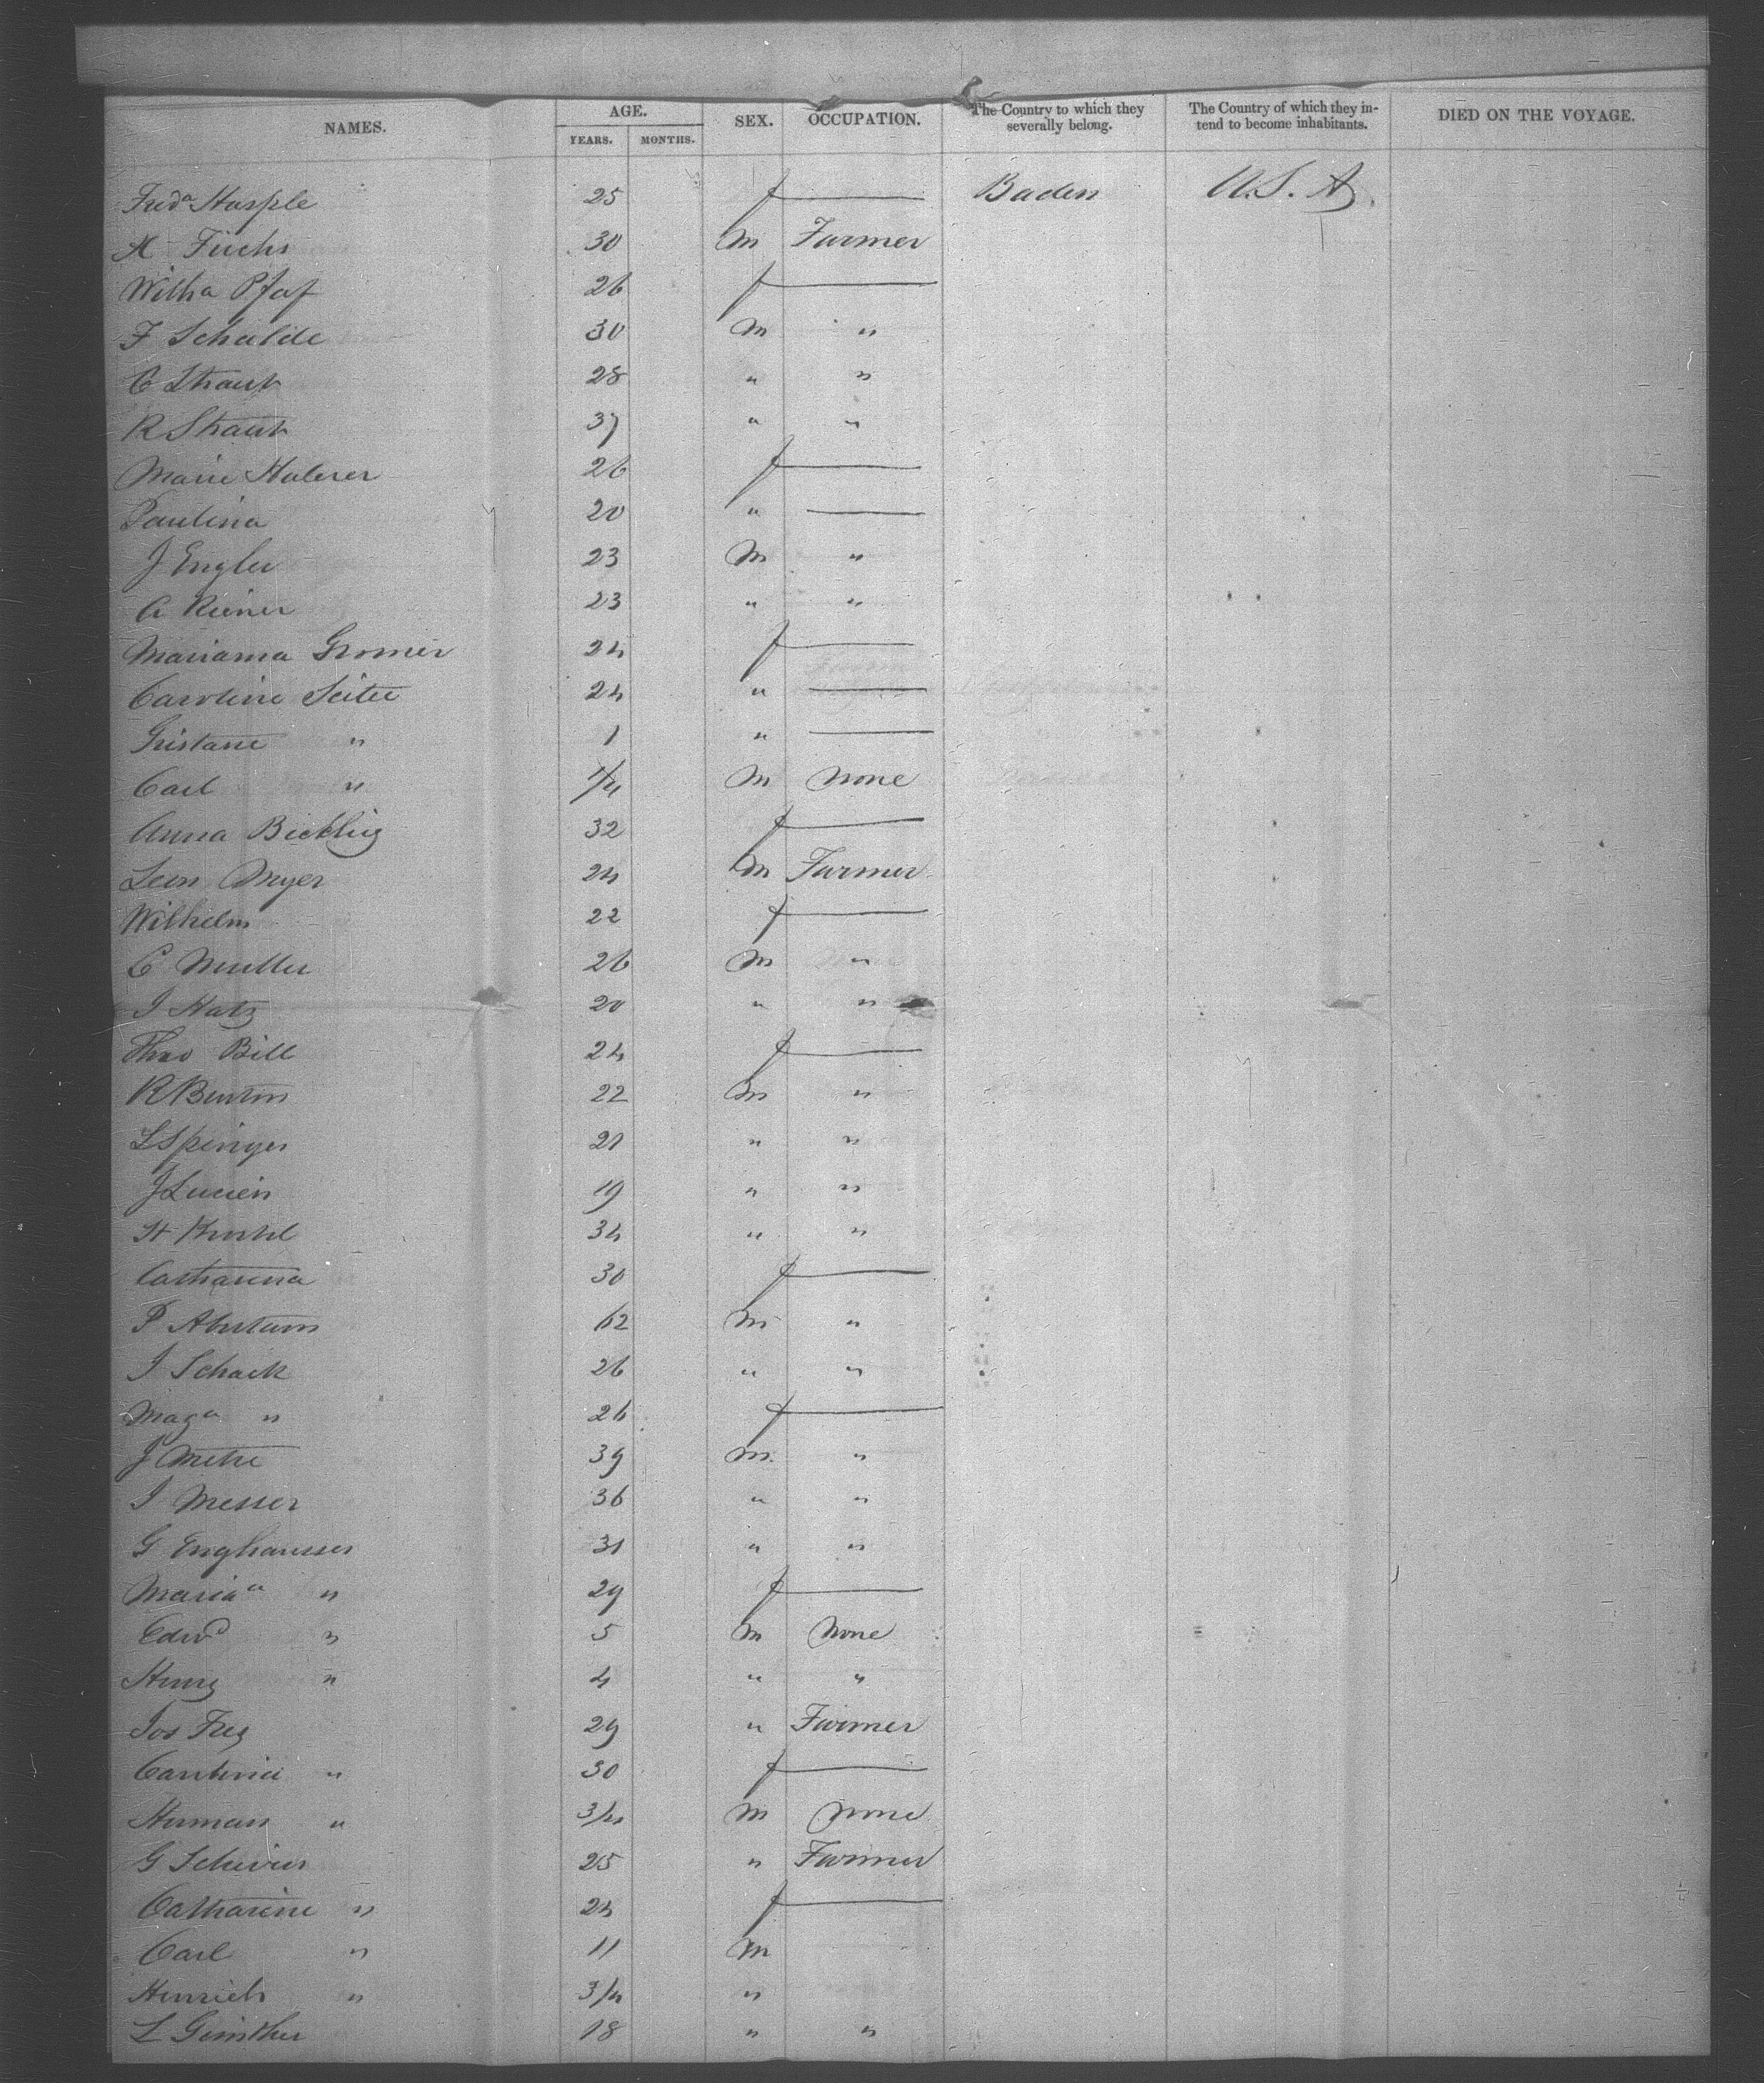 NAMES. AGE. YEARS. MONTHS. SEX. OCCUPATION. The Country to which they severally belong. The Country of which they intend to become inhabitants. DIED ON THE VOYAGE.
Fredª Hasple 25 f — Baden U.S.A.
A Fuchs 30 m Farmer
Wilhª Pfaf 26 f —
F Schalde 30 m "
C Straub 28 " "
R Straub 37 " "
Marie Halerer 26 f —
Paulina 20 " —
J Engler 23 m "
A Reiner 23 " "
Marianna Gromer 24 f —
Caroline Seitee 24 " —
Gristane " 1 " —
Carl " 1/4 m none
Anna Bickling 32 f —
Leon Myer 24 m Farmer
Wilhelm 22 f —
C Muller 26 m "
J Hatz 20 " "
Theo Bill 24 f —
R Burton 22 m "
L Springer 21 " "
J Lucien 19 " "
H 34 " "
Catharina 30 f —
P 62 m "
J Schack 26 " "
Magª " 26 f —
J Metre 39 m "
J Messer 36 " "
G Enghausser 31 " "
Mariaª " 29 f —
Edwd " 5 m none
Henry " 4 " "
Jos Frey 29 " Farmer
" 30 f —
Herman " 3/4 m none
G Scherier 25 " Farmer
Catharine " 24 f —
Carl " 11 m
Henrich " 3/4 "
L Ginther 18 " "